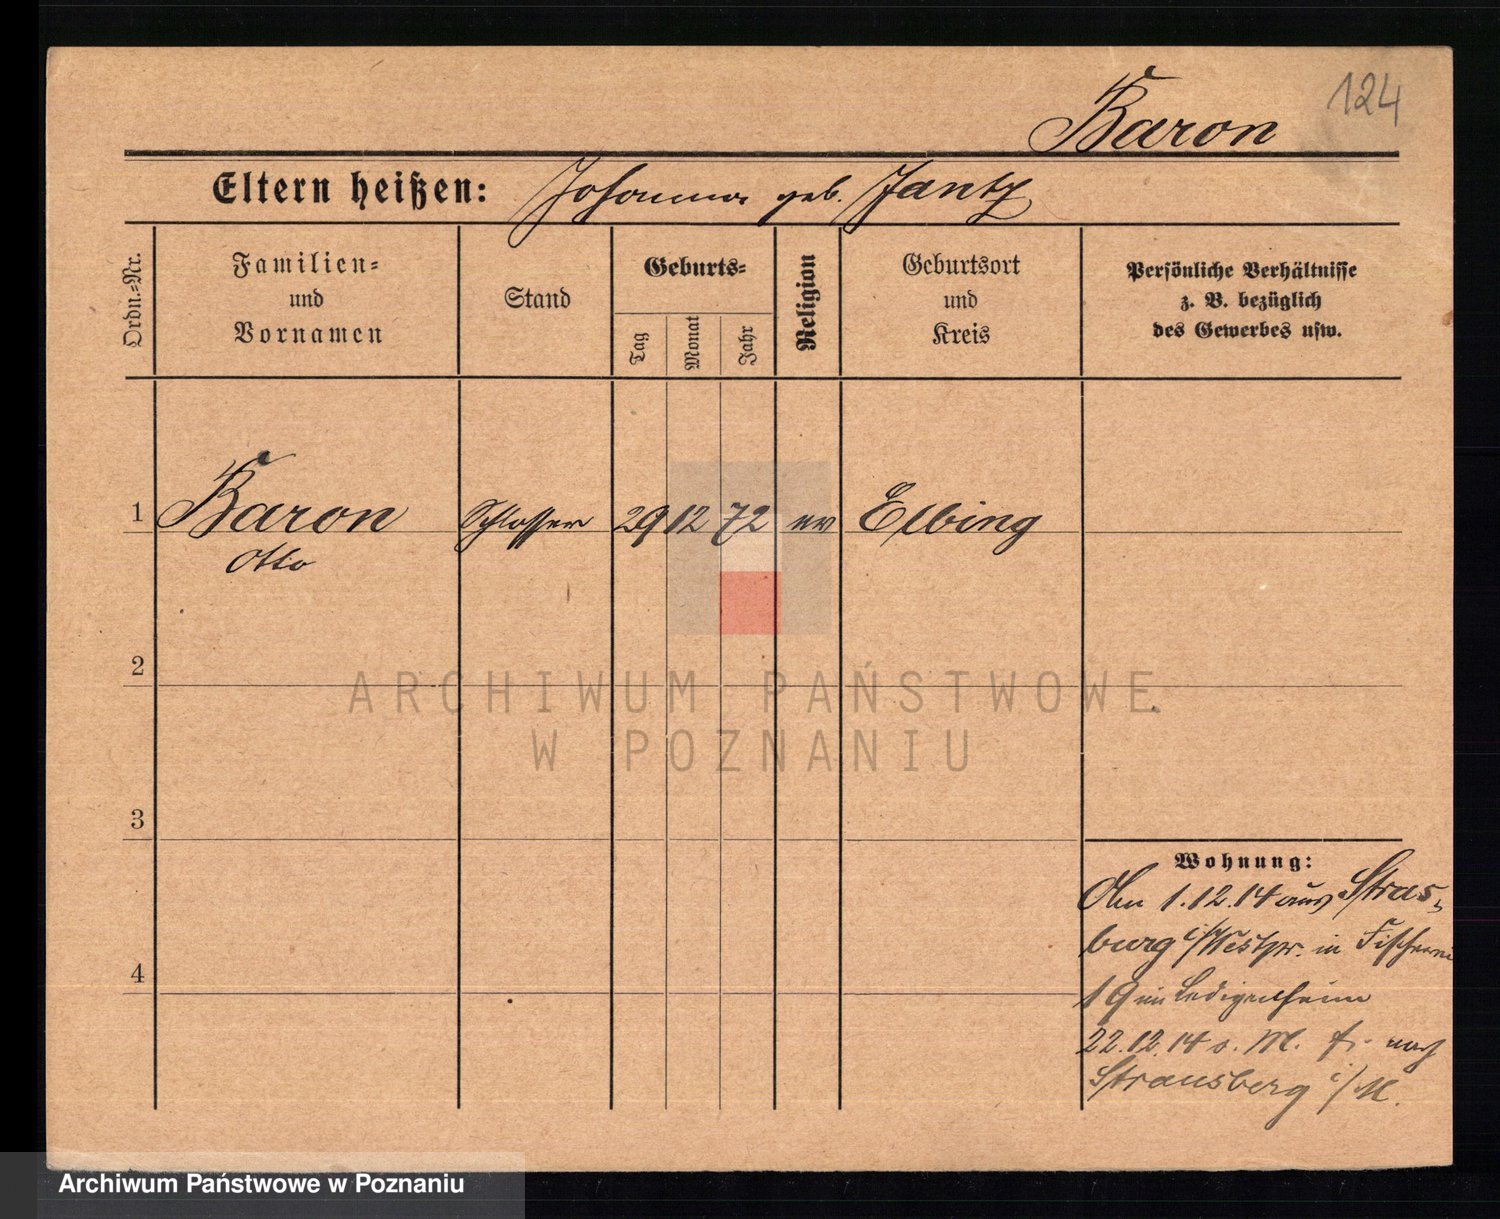 124
Baron
Eltern heißen: Johanna geb. Jantz
Ordn.-Nr.
Familien-
und
Vornamen
Stand
Geburts-
Tag
Monat
Jahr
Religion
Geburtsort
und
Kreis
Persönliche Verhältnisse
z. B. bezüglich
des Gewerbes usw.
1 Baron Schlosser 29 12 72 ev Elbing
Otto
2
3
4
Wohnung:
1.12.14 aus Stras-
burg i/Westpr. in Fischerei
19 im Ledigenheim
22.12.14 o. M. fr. nach
Strausberg i/M.
ARCHIWUM PAŃSTWOWE
W POZNANIU
Archiwum Państwowe w Poznaniu